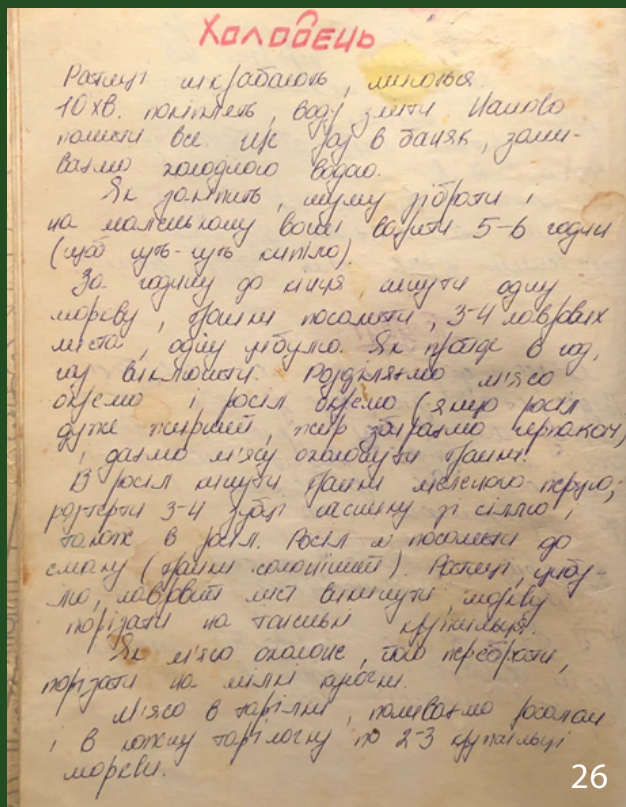 Холодець
Ратиці шкрабають, миються.
10 хв. покіпіть, воду злити. Наново
помити все іще раз в баняк, зали-
ваємо холодною водою.
Як закіпить, шуму зібрати і
на малєнькому вогні варити 5-6 годин
(щоб чуть-чуть кипіло).
За годину до кінця кинути одну
моркву, трошки посолити, 3-4 лаврових
листа, одну цибулю. Як пройде 6 год,
виключити. Розділяємо м'ясо
окремо і росіл окремо (якщо росіл
дуже жирний, жир забираємо черпаком)
і даємо м'ясу охолонути трошки.
В росіл кинути трошки меленого перцю,
розтерти 3-4 зубці часнику зі сіллю і
також в росіл. Росіл посолити до
смаку (трошки солоніший). Ратиці, цибу-
лю, лавровий лист викинути, моркву
порізати на тоненькі кружальця.
Як м'ясо охолоне, його перебрати,
порізати на мілкі кусочки.
М'ясо в тарілки, поливаємо росолом
і в кожну тарілочку по 2-3 кружальці
моркви.
26